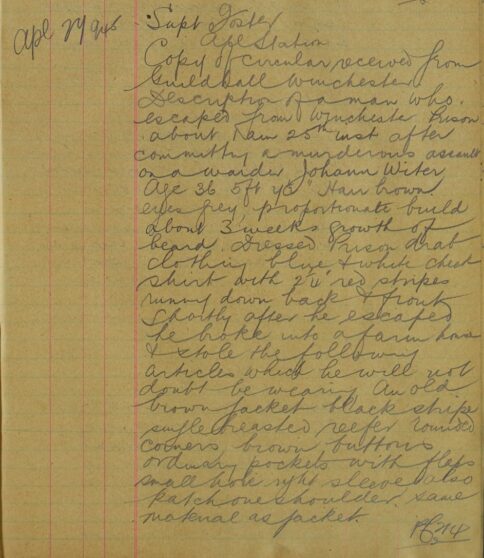 Apl 27 9 45
Supt Foster
Ape Station
Copy of circular received from
Guildhall Winchester
Description of a man who
escaped from Winchester Prison
about 1 am 25th inst after
committing a murderous assault
on a warder Johann Witer
Age 36 5ft Hair brown
eyes grey proportionate build
about 3 weeks growth of
beard. Dressed Prison drab
clothing blue & white check
shirt with 2 red stripes
running down back & front
Shortly after he escaped
he broke into a farm house
& stole the following
articles which he will not
doubt be wearing An old
brown jacket black stripe
single breasted reefer rounded
corners, brown buttons
ordinary pockets with flaps
small hole right sleeve also
patch one shoulder same
material as jacket.